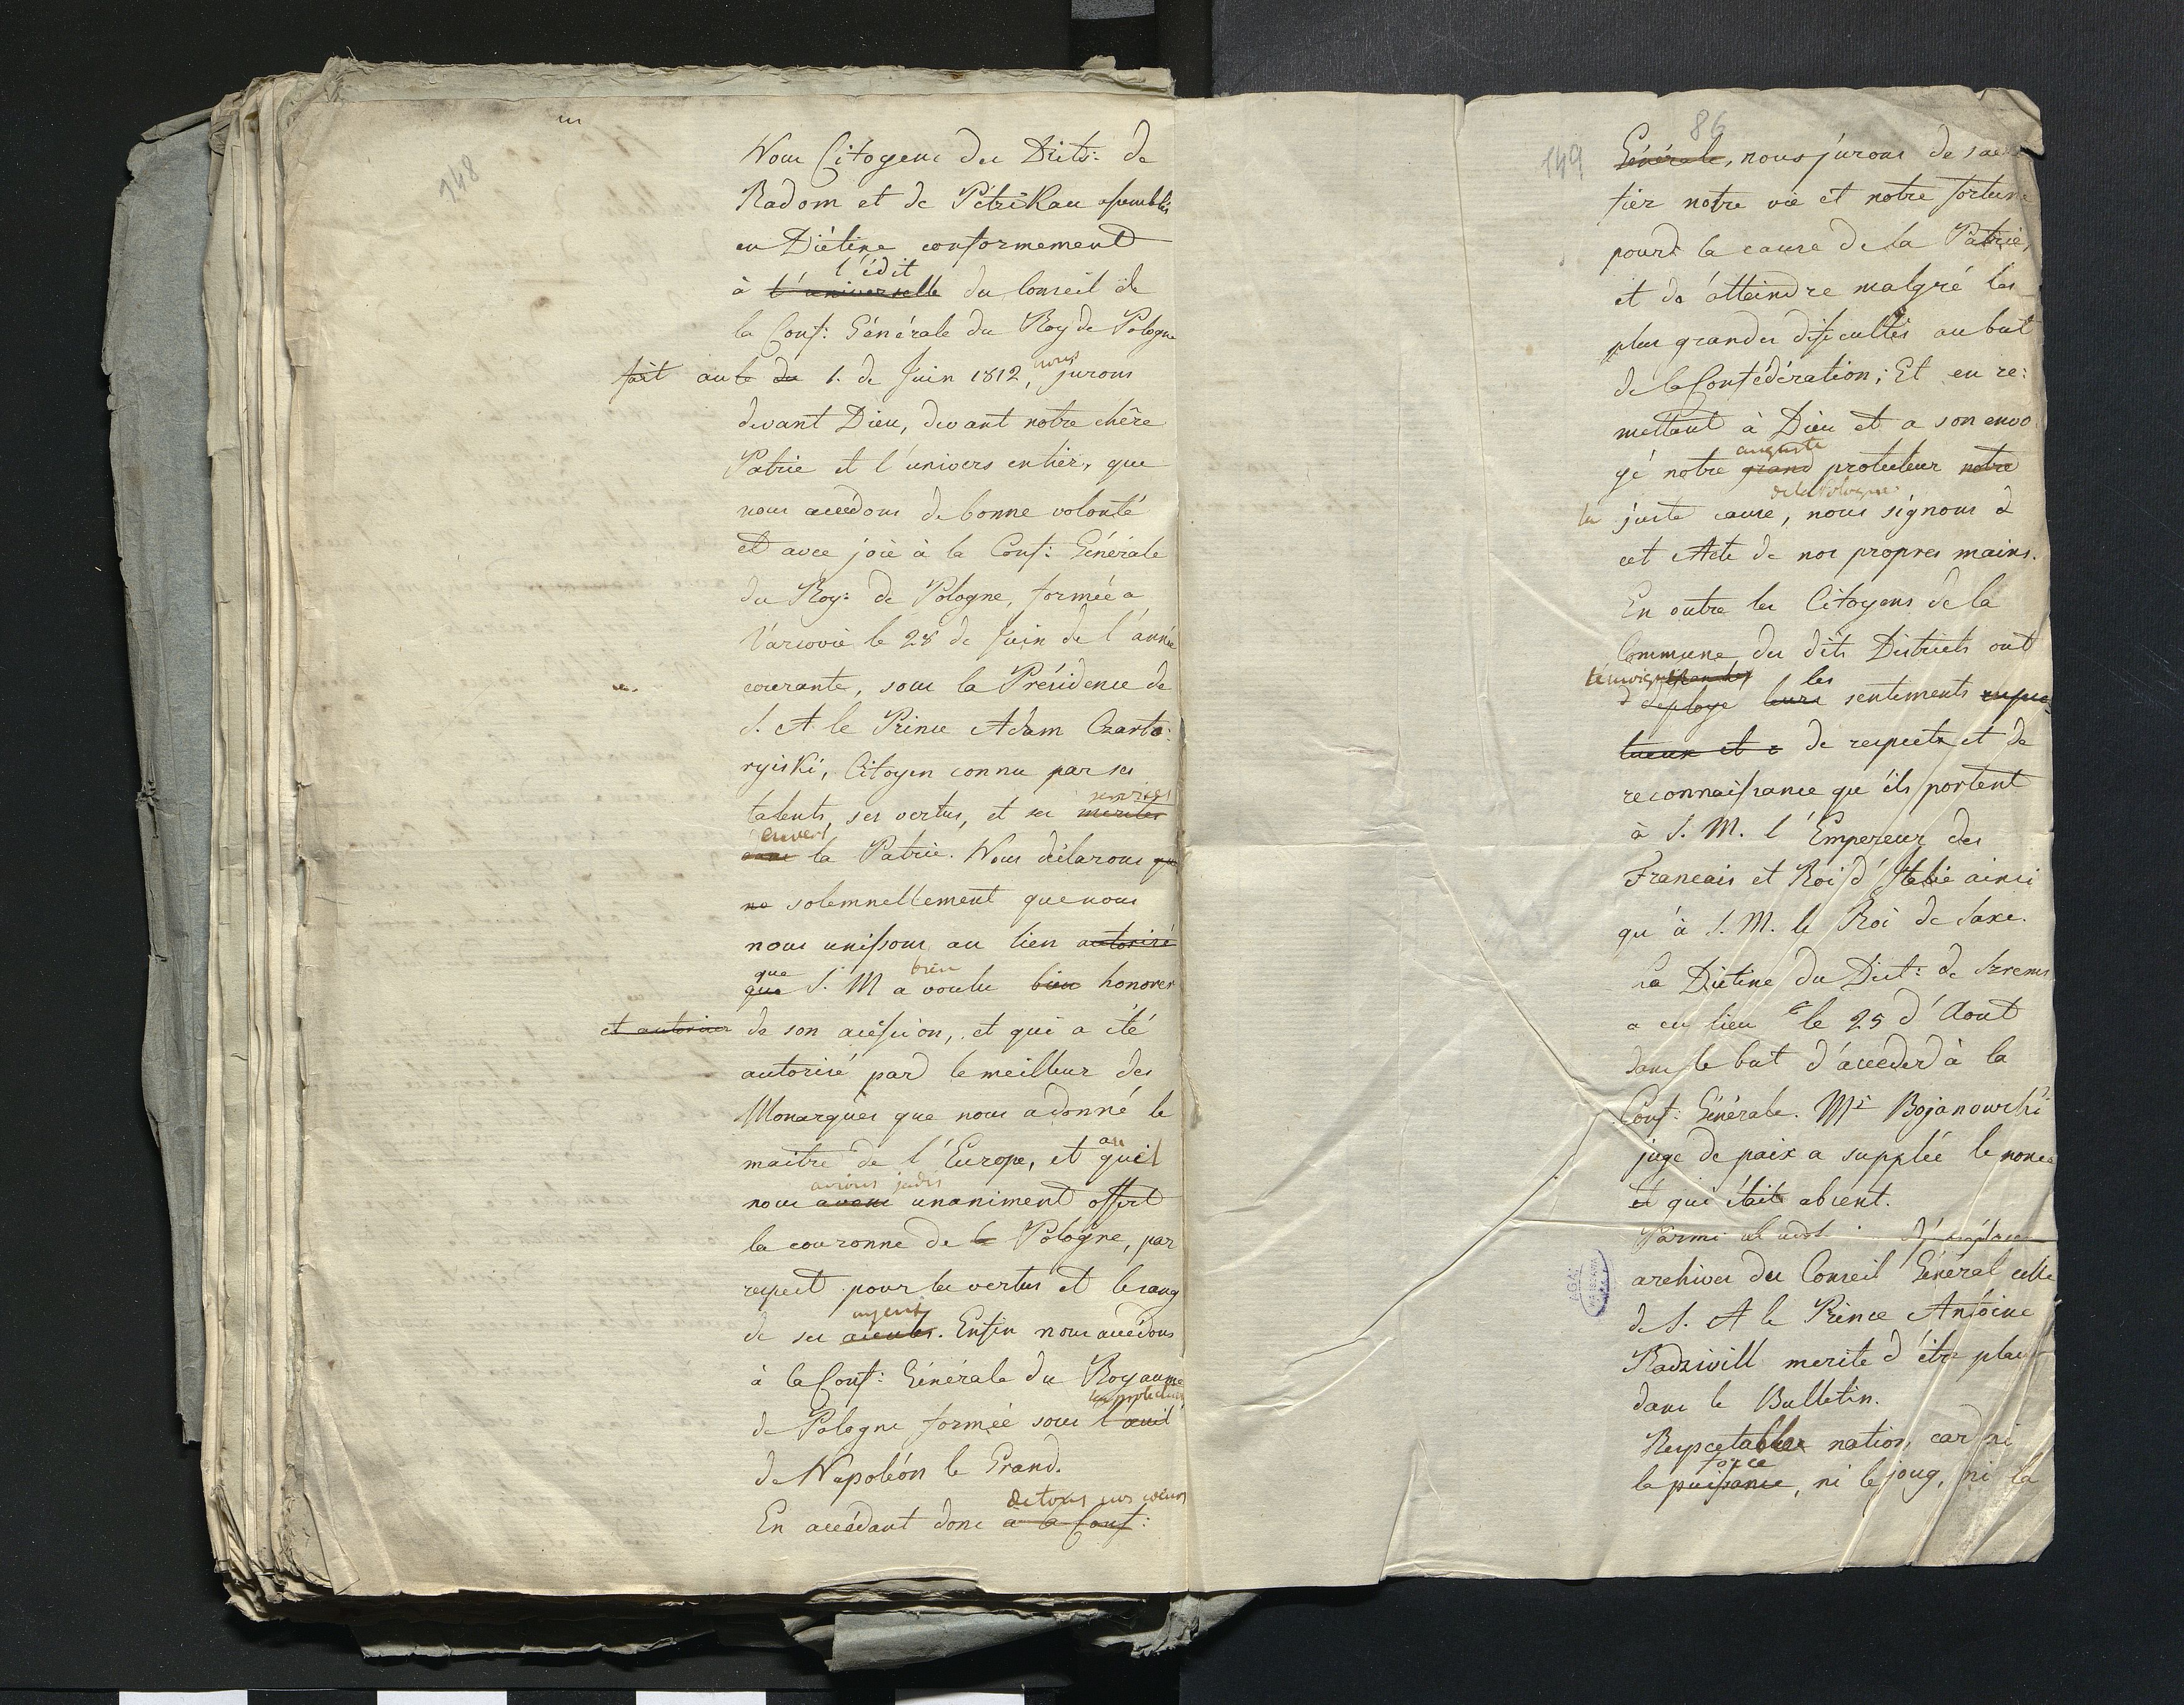 148
Nous Citoyens des Distr: de
Radom et de Petrikau assemblés
en Diétine conformement
l'édit
à l'universelle du Conseil de
la Conf: Générale du Roy de Pologne
nous
fait au le du 1. de Juin 1812, jurons
devant Dieu, devant notre chêre
Patrie et l'univers entier, que
nous accédons de bonne volonté
et avec joie à la Conf: Générale
du Roy: de Pologne, formée a
Varsovie le 28 de Juin de l'année
courante, sous la Présidence de
S. A le Prince Adam Czarto:
ryiski, Citoyen connu par ses
services
talents, ses vertus, et ses merites
envers
dans la Patrie. Nous déclarons que
ne solemnellement que nous
nous unissons au lien autorisé
que bien
que S. M a voulu bien honorer
et autoriser de son acession, et qui a été
autorisé par le meilleur des
Monarques que nous a donné le
au
maitre de l'Europe, et quel
avions jadis
nous avons unaniment offert
la couronne de la Pologne, par
respect pour les vertus et le sang
de ses aieules. Enfin nous accédons
à la Conf: Générale du Royaume
la protection
de Pologne formée sous l'œuil
de Napoléon le Grand.
de tous nos cœurs
En accédant donc a la Conf:
86
149
Générale, nous jurons de sacri
fier notre vie et notre fortune
pour la cause de la Patrie,
et de atteindre malgré les
plus grandes dificultés au but
de la Confédération; Et en re:
mettant à Dieu et a son envo
auguste
yé notre grand protecteur notre
de la Pologne
la juste cause, nous signons
cet Acte de nos propres mains.
En outre les Citoyens de la
Commune des dits Districts ont
témoigné les
deploye leurs sentiments respec
tueux et de respect et de
reconnaissance qu'ils portent
à S. M. l'Empereur des
Francais et Roi d'Italie ainsi
qu'à S. M. le Roi de Saxe.
La Diétine du Dist: de Szrems
a eu lieu le 25 d'Aout
dans le but d'acceder à la
Conf: Générale. Mr Bojanowski
juge de paix a supplée le nonce
et qui était absent.
Parmi
archives du Conseil Général celle
de S. A le Prince Antoine
Radziwill merite d'être placé
dans le Bulletin.
Respectables nation, car ni
force
la puissance, ni le joug, ni la